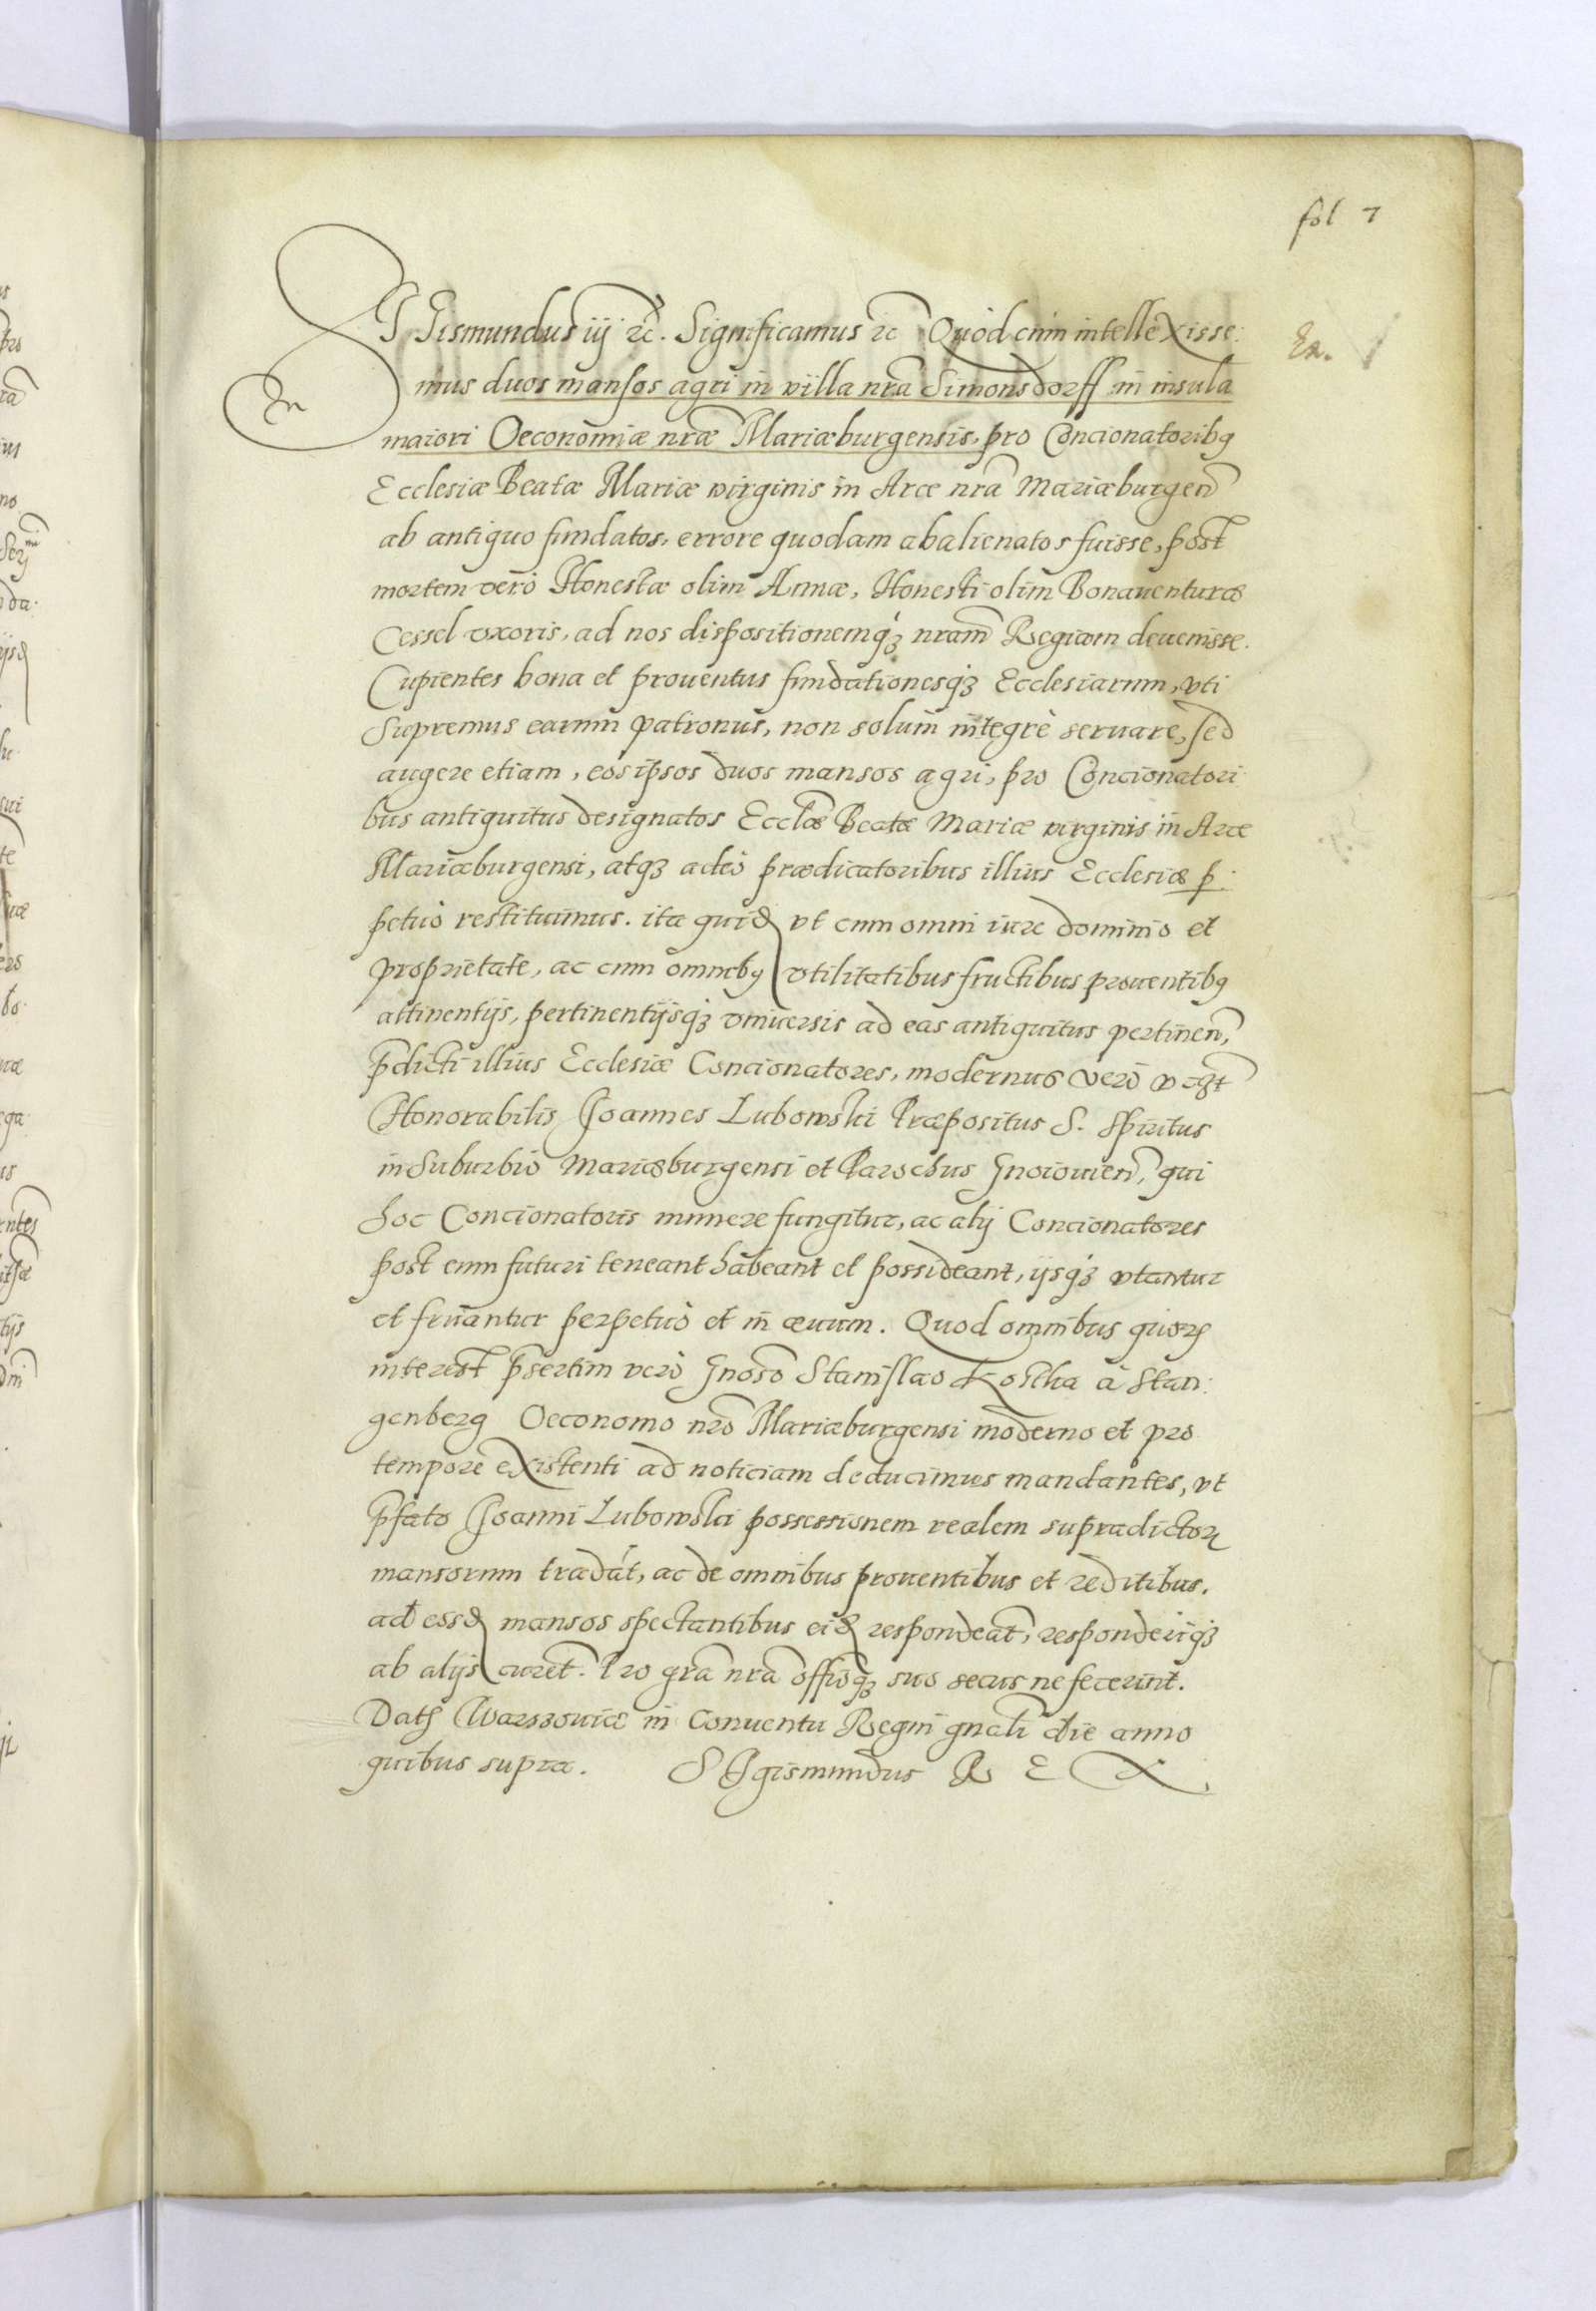 fol 7
SIGismundus iij ꝛc. Significamus ꝛc Quòd cum intellexisse:
En.
mus duos mansos agri in villa nrã Simonsdorff in insula
maiori Oeconomiæ nræ Mariæburgensis, pro Concionatoribꝰ
Ecclesiæ Beatæ Mariæ virginis in Arce nrã Mariæburgeñ
ab antiquo fundatos, errore quodam abalienatos fuisse, post
mortem verò Honestæ olim Annæ, Honesti olim Bonauenturæ
Cessel vxoris, ad nos dispositionemqꝫ nram̃ Regiam deuenisse.
Cupientes bona et prouentus fundationesqꝫ Ecclesiarum, vti
Supremus earum patronus, non solum integrè seruare, sed
augere etiam, eos ipsos duos mansos agri, pro Concionatori
bus antiquitus designatos Eccłæ Beatæ Mariæ virginis in Arce
Mariæburgensi, atqꝫ adeò prædicatoribus illius Ecclesiæ ꝑ:
petuò restituimus. ita quidꝫ vt cum omni iure dominio et
proprietate, ac cum omnibꝰ vtilitatibus fructibus prouentibꝰ
attinentijs, pertinentijsqꝫ vniuersis ad eas antiquitus pertineñ,
p̃dicti illius Ecclesiæ Concionatores, modernus verò
Honorabilis Joannes Lubowski Præpositus S. Spiritus
in Suburbio Mariæburgensi et Parochus Gnoiouieñ, qui
hoc Concionatoris munere fungitur, ac alij Concionatores
post eum futuri teneant habeant et possideant, ijsqꝫ vtantur
et fruantur perpetuò et in æuum. Quod omnibus quorꝝ
interest p̃sertim verò Gnoso Stanislao Kostka à Stan:
genberg Oeconomo nrõ Mariæburgensi moderno et pro
tempore existenti ad noticiam deducimus mandantes, vt
p̃fato Joanni Lubowski possessionem realem supradictorꝝ
mansorum tradat, ac de omnibus prouentibus et reditibus.
ad eosdꝫ mansos spectantibus eidꝫ respondeat, responderiqꝫ
ab alijs curet. Pro grã nrã offõqꝫ suo secus ne fecerint.
Datꝭ Warszouiæ in Conuentu Regni gnãli die anno
quibus supra. SIgismundus REX